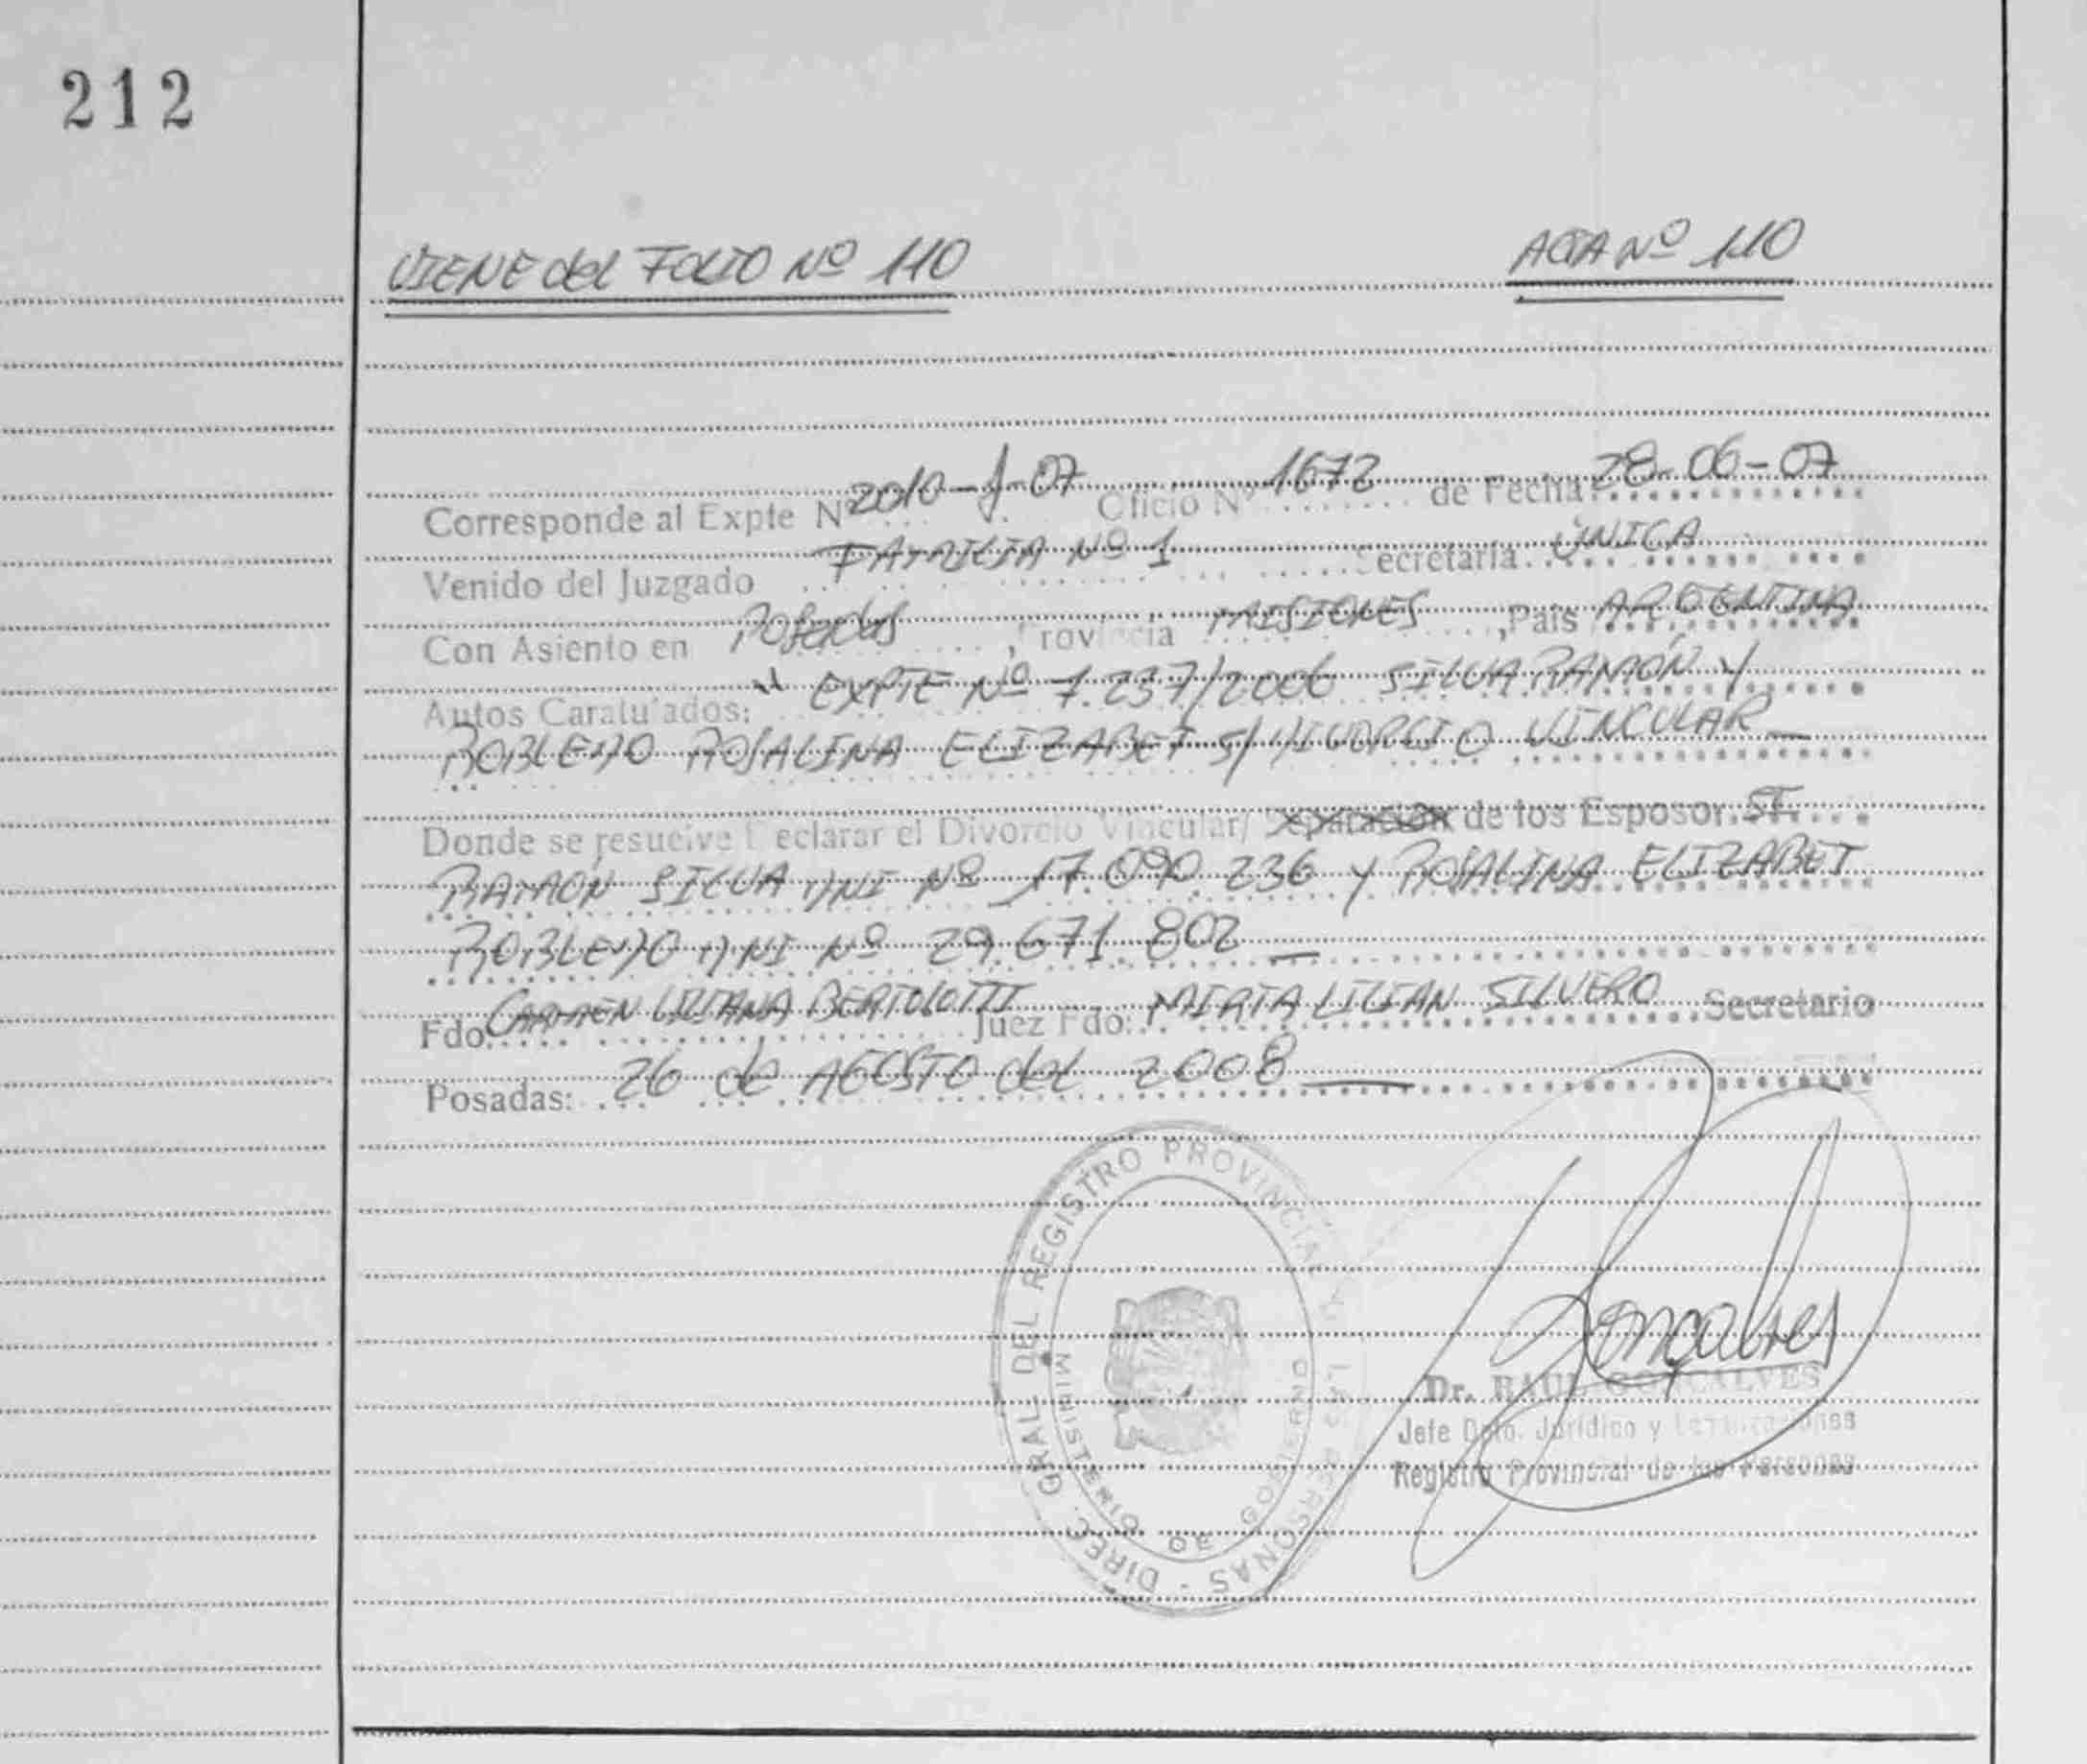 212
VIENE del FOLIO Nº 110
ACTA Nº 110
Corresponde al Expte Nº 2010-J-07 Oficio Nº 1672 de Fecha: 28-06-07
Venido del Juzgado FAMILIA Nº 1 Secretaría ÚNICA
Con Asiento en Posadas, Provincia MISIONES, País ARGENTINA
Autos Caratulados: " EXPTE Nº 7.237/2006 SILVA RAMÓN Y
ROBLEDO ROSALINA ELIZABET S/ DIVORCIO VINCULAR
Donde se resuelve Declarar el Divorcio Vincular/ Separación de los Esposos. Sr.
RAMÓN SILVA DNI Nº 17.090.236 Y ROSALINA ELIZABET
ROBLEDO DNI Nº 29.671.802
Fdo: CARMEN LILIANA BERTOLOTTI Juez Fdo: MIRTA LILIAN SILVERO Secretario
Posadas: 26 de AGOSTO del 2008
DIREC. GRAL. DEL REGISTRO PROVINCIAL DE LAS PERSONAS -
MINISTERIO DE GOBIERNO
Goncalves
Dr. RAUL GONÇALVES
Jefe Dpto. Jurídico y
Registro Provincial de las Personas